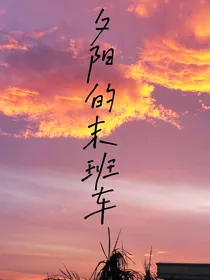 夕阳的末班车